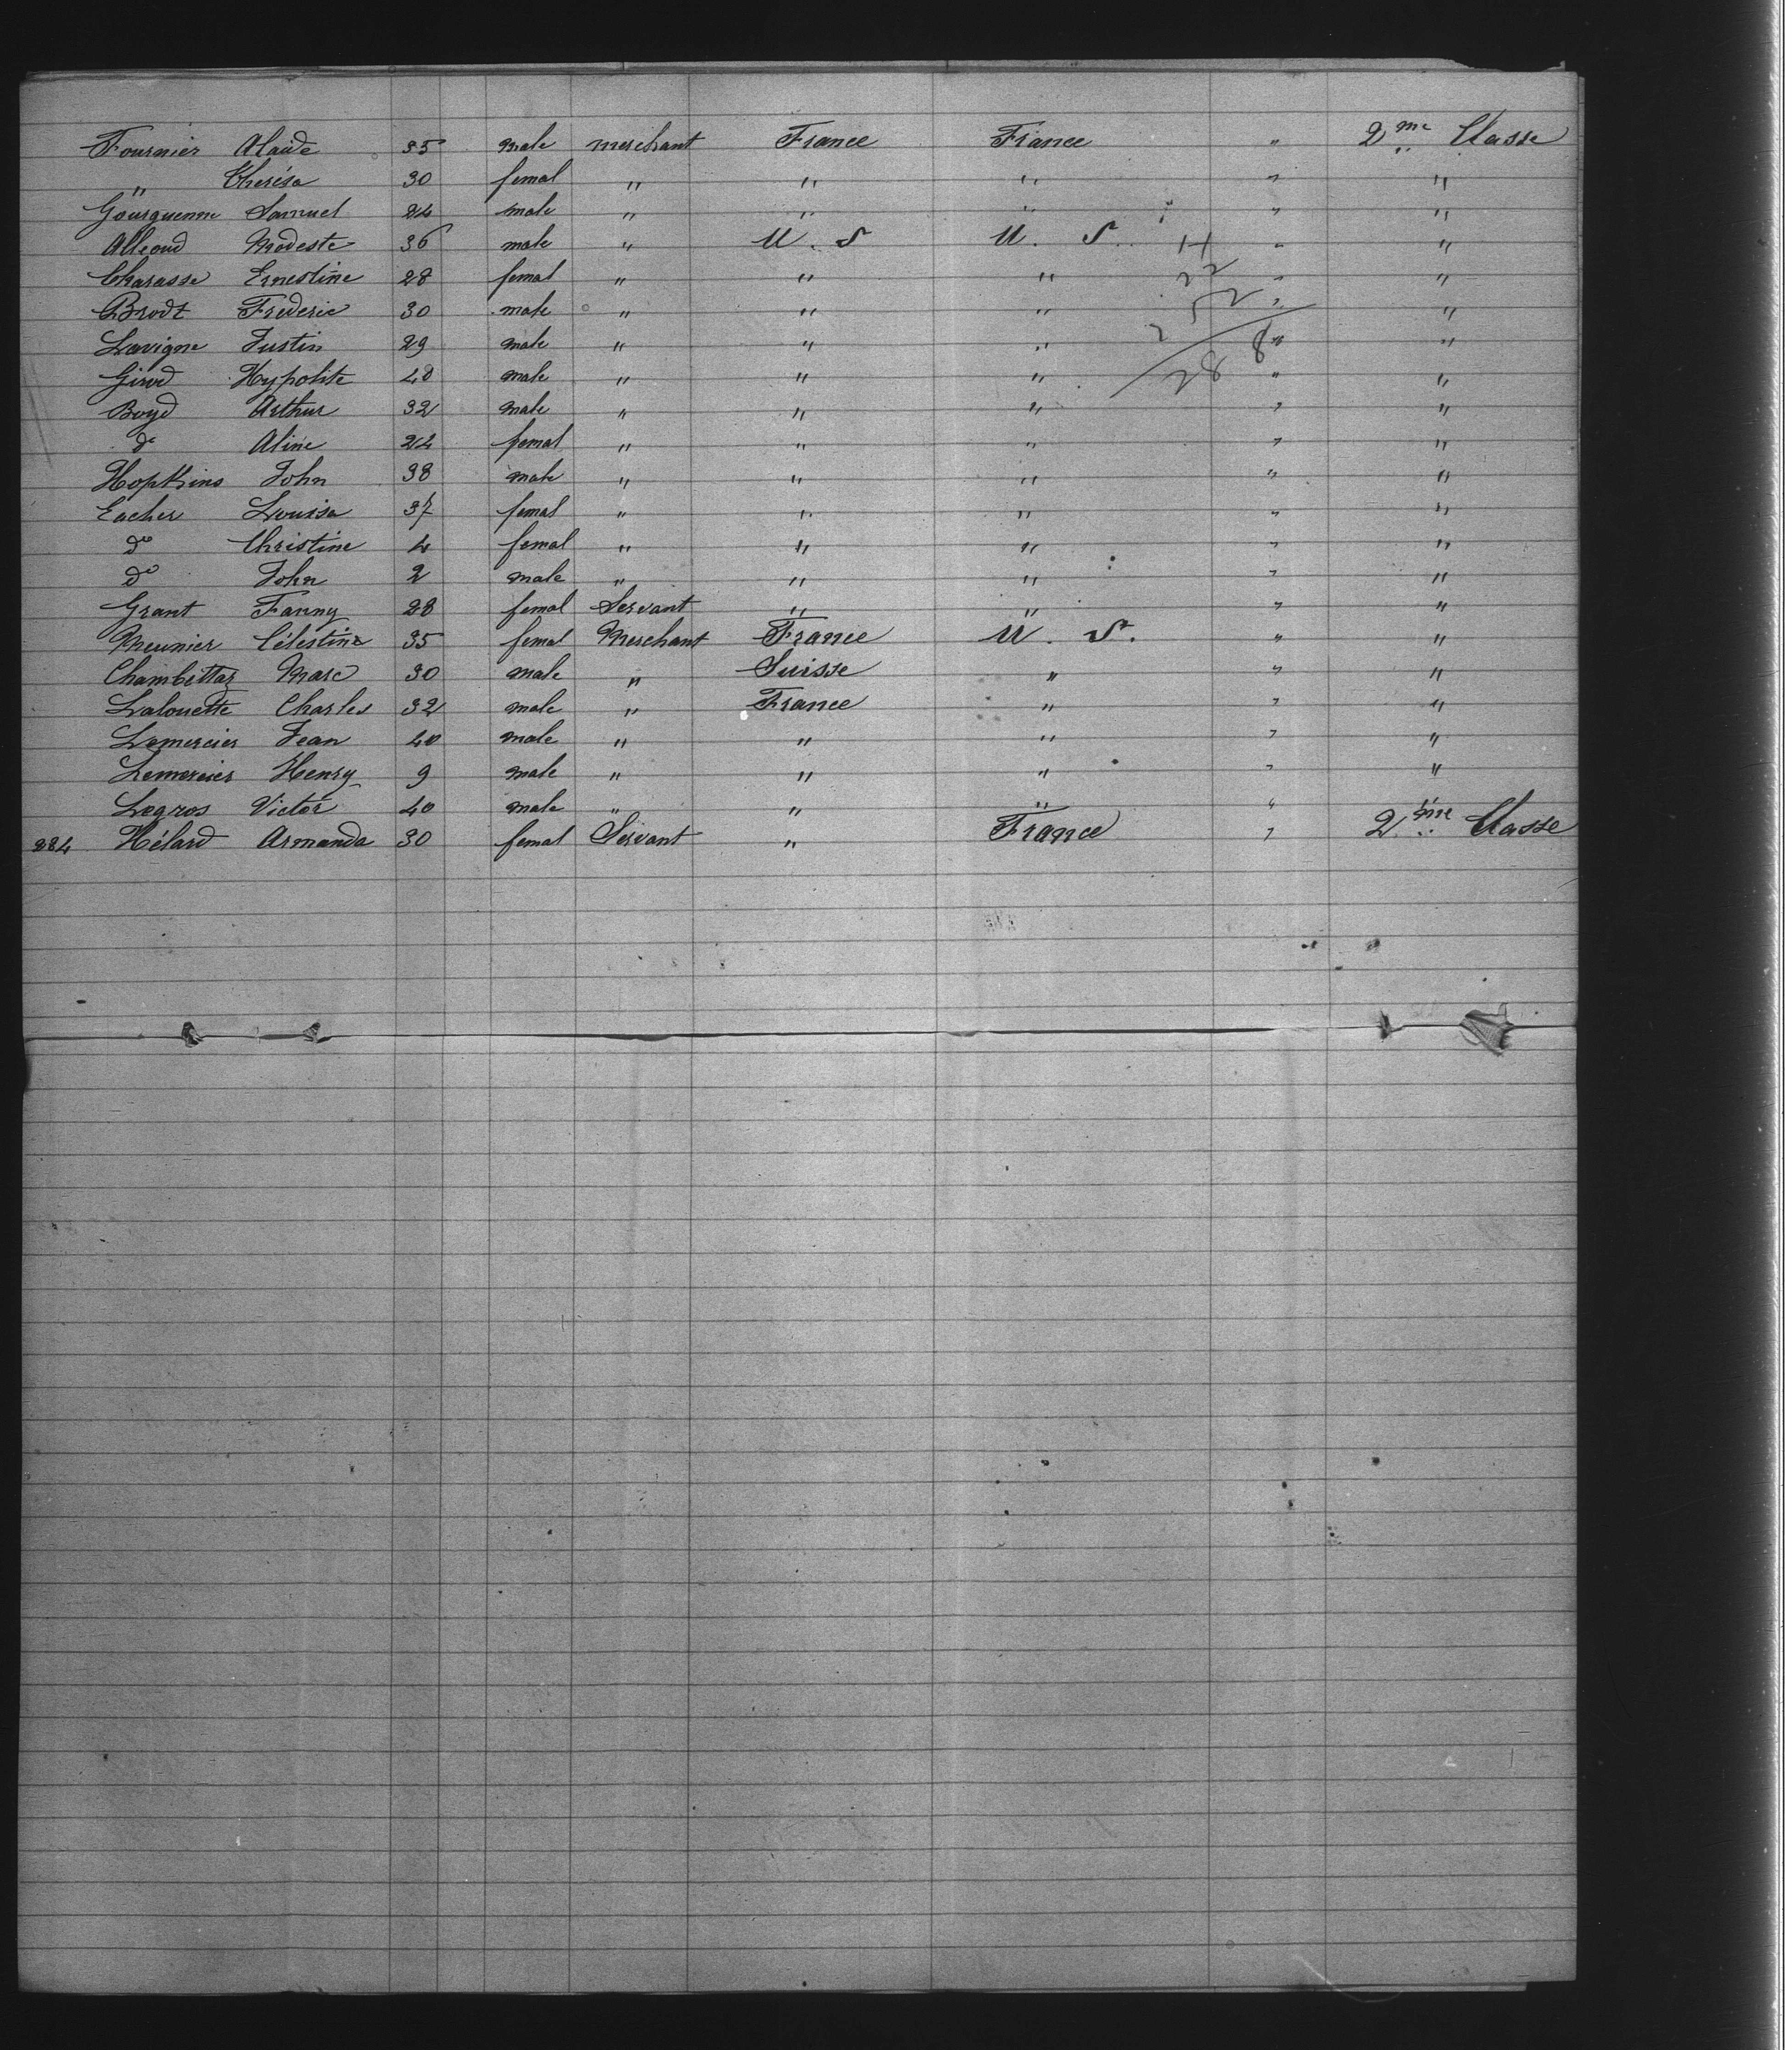 Fournier Alaide 35 male merchant France France " 2me Classe
" Therésa 30 femal " " " " "
Gourguenne Samuel 24 male " " " " "
Alleoud Modeste 36 male " U. S U. S. " "
Charasse Ernestine 28 femal " " " " "
Brodt Frederic 30 male " " " " "
Lavigne Justin 29 male " " " " "
Girod Hypolite 40 male " " " " "
Boyd Arthur 32 male " " " " "
do Aline 24 femal " " " " "
Hopkins John 38 male " " " " "
Eacher Louisa 37 femal " " " " "
do Christine 4 femal " " " " "
do John 2 male " " " " "
Grant Fanny 28 femal Servant " " " "
Meunier Célestine 35 femal Merchant France U. S. " "
Chambettaz Marc 30 male " Suisse " " "
Lalouette Charles 32 male " France " " "
Lemercier Jean 40 male " " " " "
Lemercier Henry 9 male " " " " "
Legros Victor 40 male " " " "
284 Hélard Armanda 30 femal Servant " France " 2ème Classe